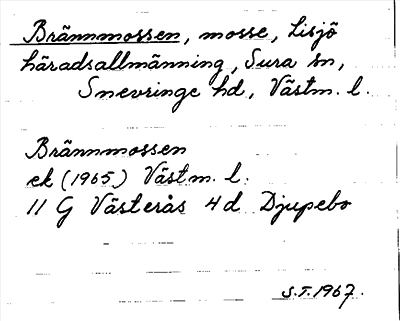 Brännmossen, mosse, Lisjö
häradsallmänning, Sura sn,
Snevringe hd, Västm. l.
Brännmossen
ek (1965) Västm. l.
11 G Västerås 4 d Djupebo
S.T. 1967.